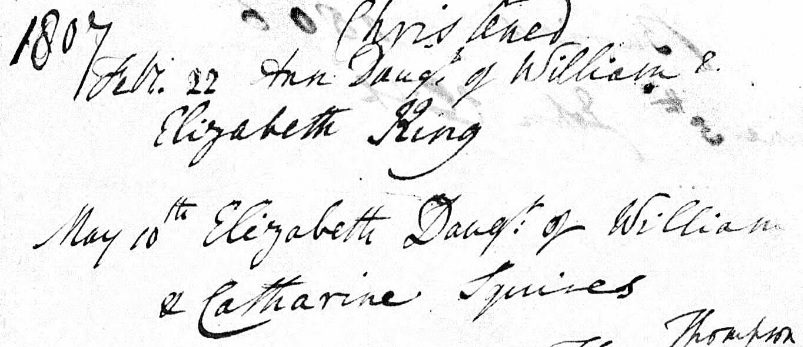 1807 Christened
Febr. 22 Ann Daugr. of William &
Elizabeth King
May 10th Elizabeth Daugr. of William
& Catharine Squires
Thompson